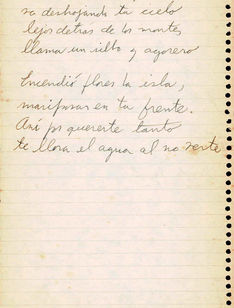 va deshojando tu cielo
lejos detras de los montes
llama un silbo y agorero
Encendió flores la isla,
mariposas en tu frente.
Así por quererte tanto
te llora el agua al no verte